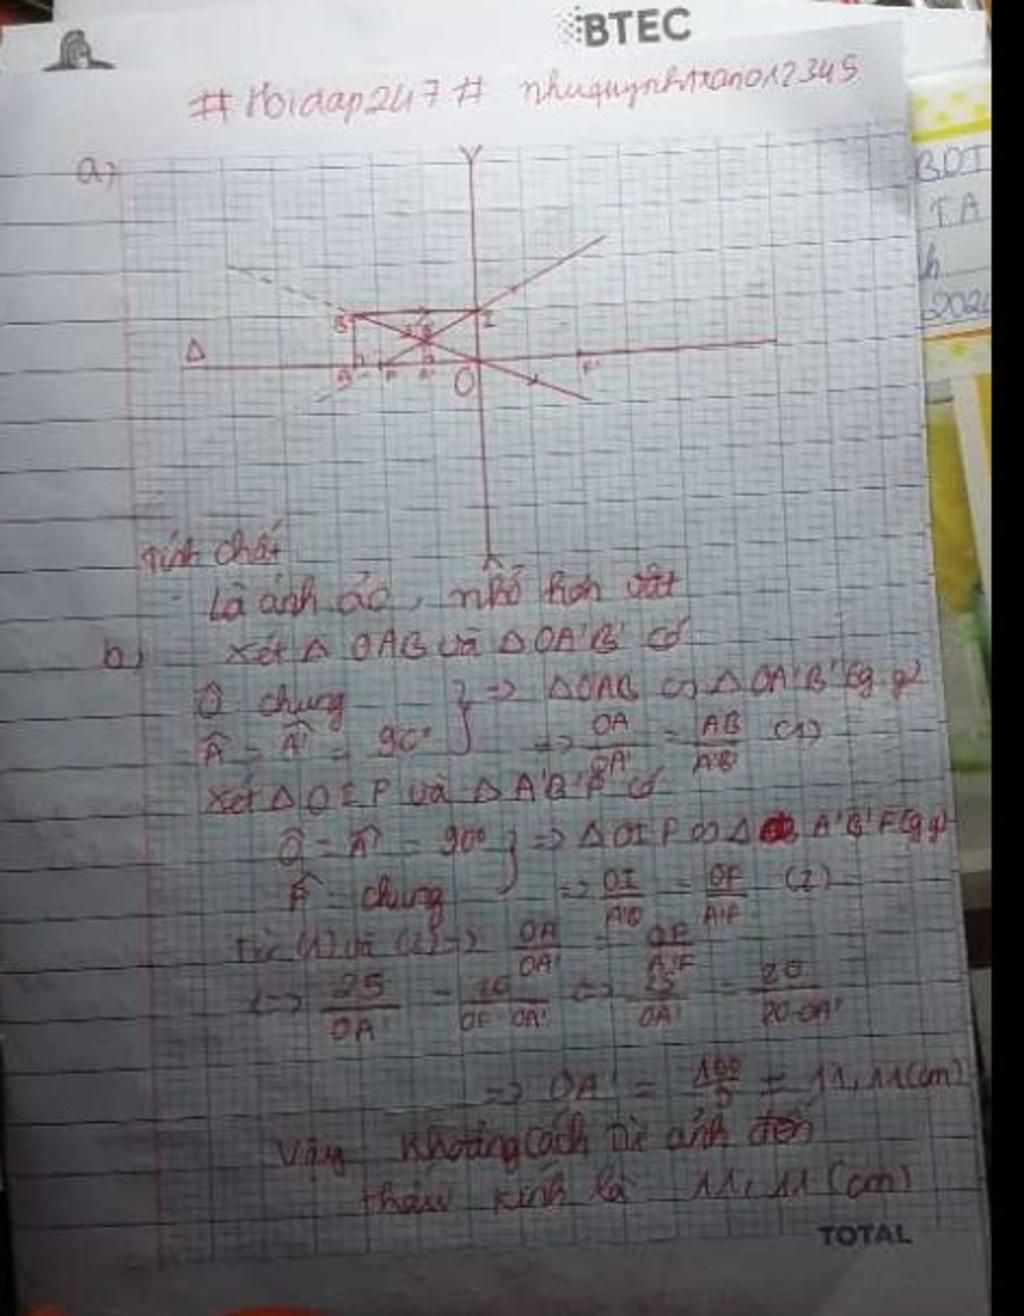 BTEC
#Hoidap247# nhuquynhtran012345
a)
BDI
TA
h
2020
B I
Δ
F A' O F'
Tính chất
Là ảnh ảo, nhỏ hơn vật
b) Xét Δ OAB và Δ OA'B' có
Ô chung } => ΔOAB ∽ Δ OA'B' (g.g)
Â = Â' = 90° => OA/OA' = AB/A'B' (1)
Xét Δ OIF và Δ A'B'F có
Ô = Â' = 90° } => Δ OIF ∽ Δ A'B'F (g.g)
F̂ chung => OI/A'B' = OF/A'F (2)
Từ (1) và (2) => OA/OA' = OF/A'F
<=> 25/OA' = 20/OF-OA' <=> 25/OA' = 20/20-OA'
=> OA' = 100/9 = 11,11(cm)
Vậy khoảng cách từ ảnh đến
thấu kính là 11,11 (cm)
TOTAL